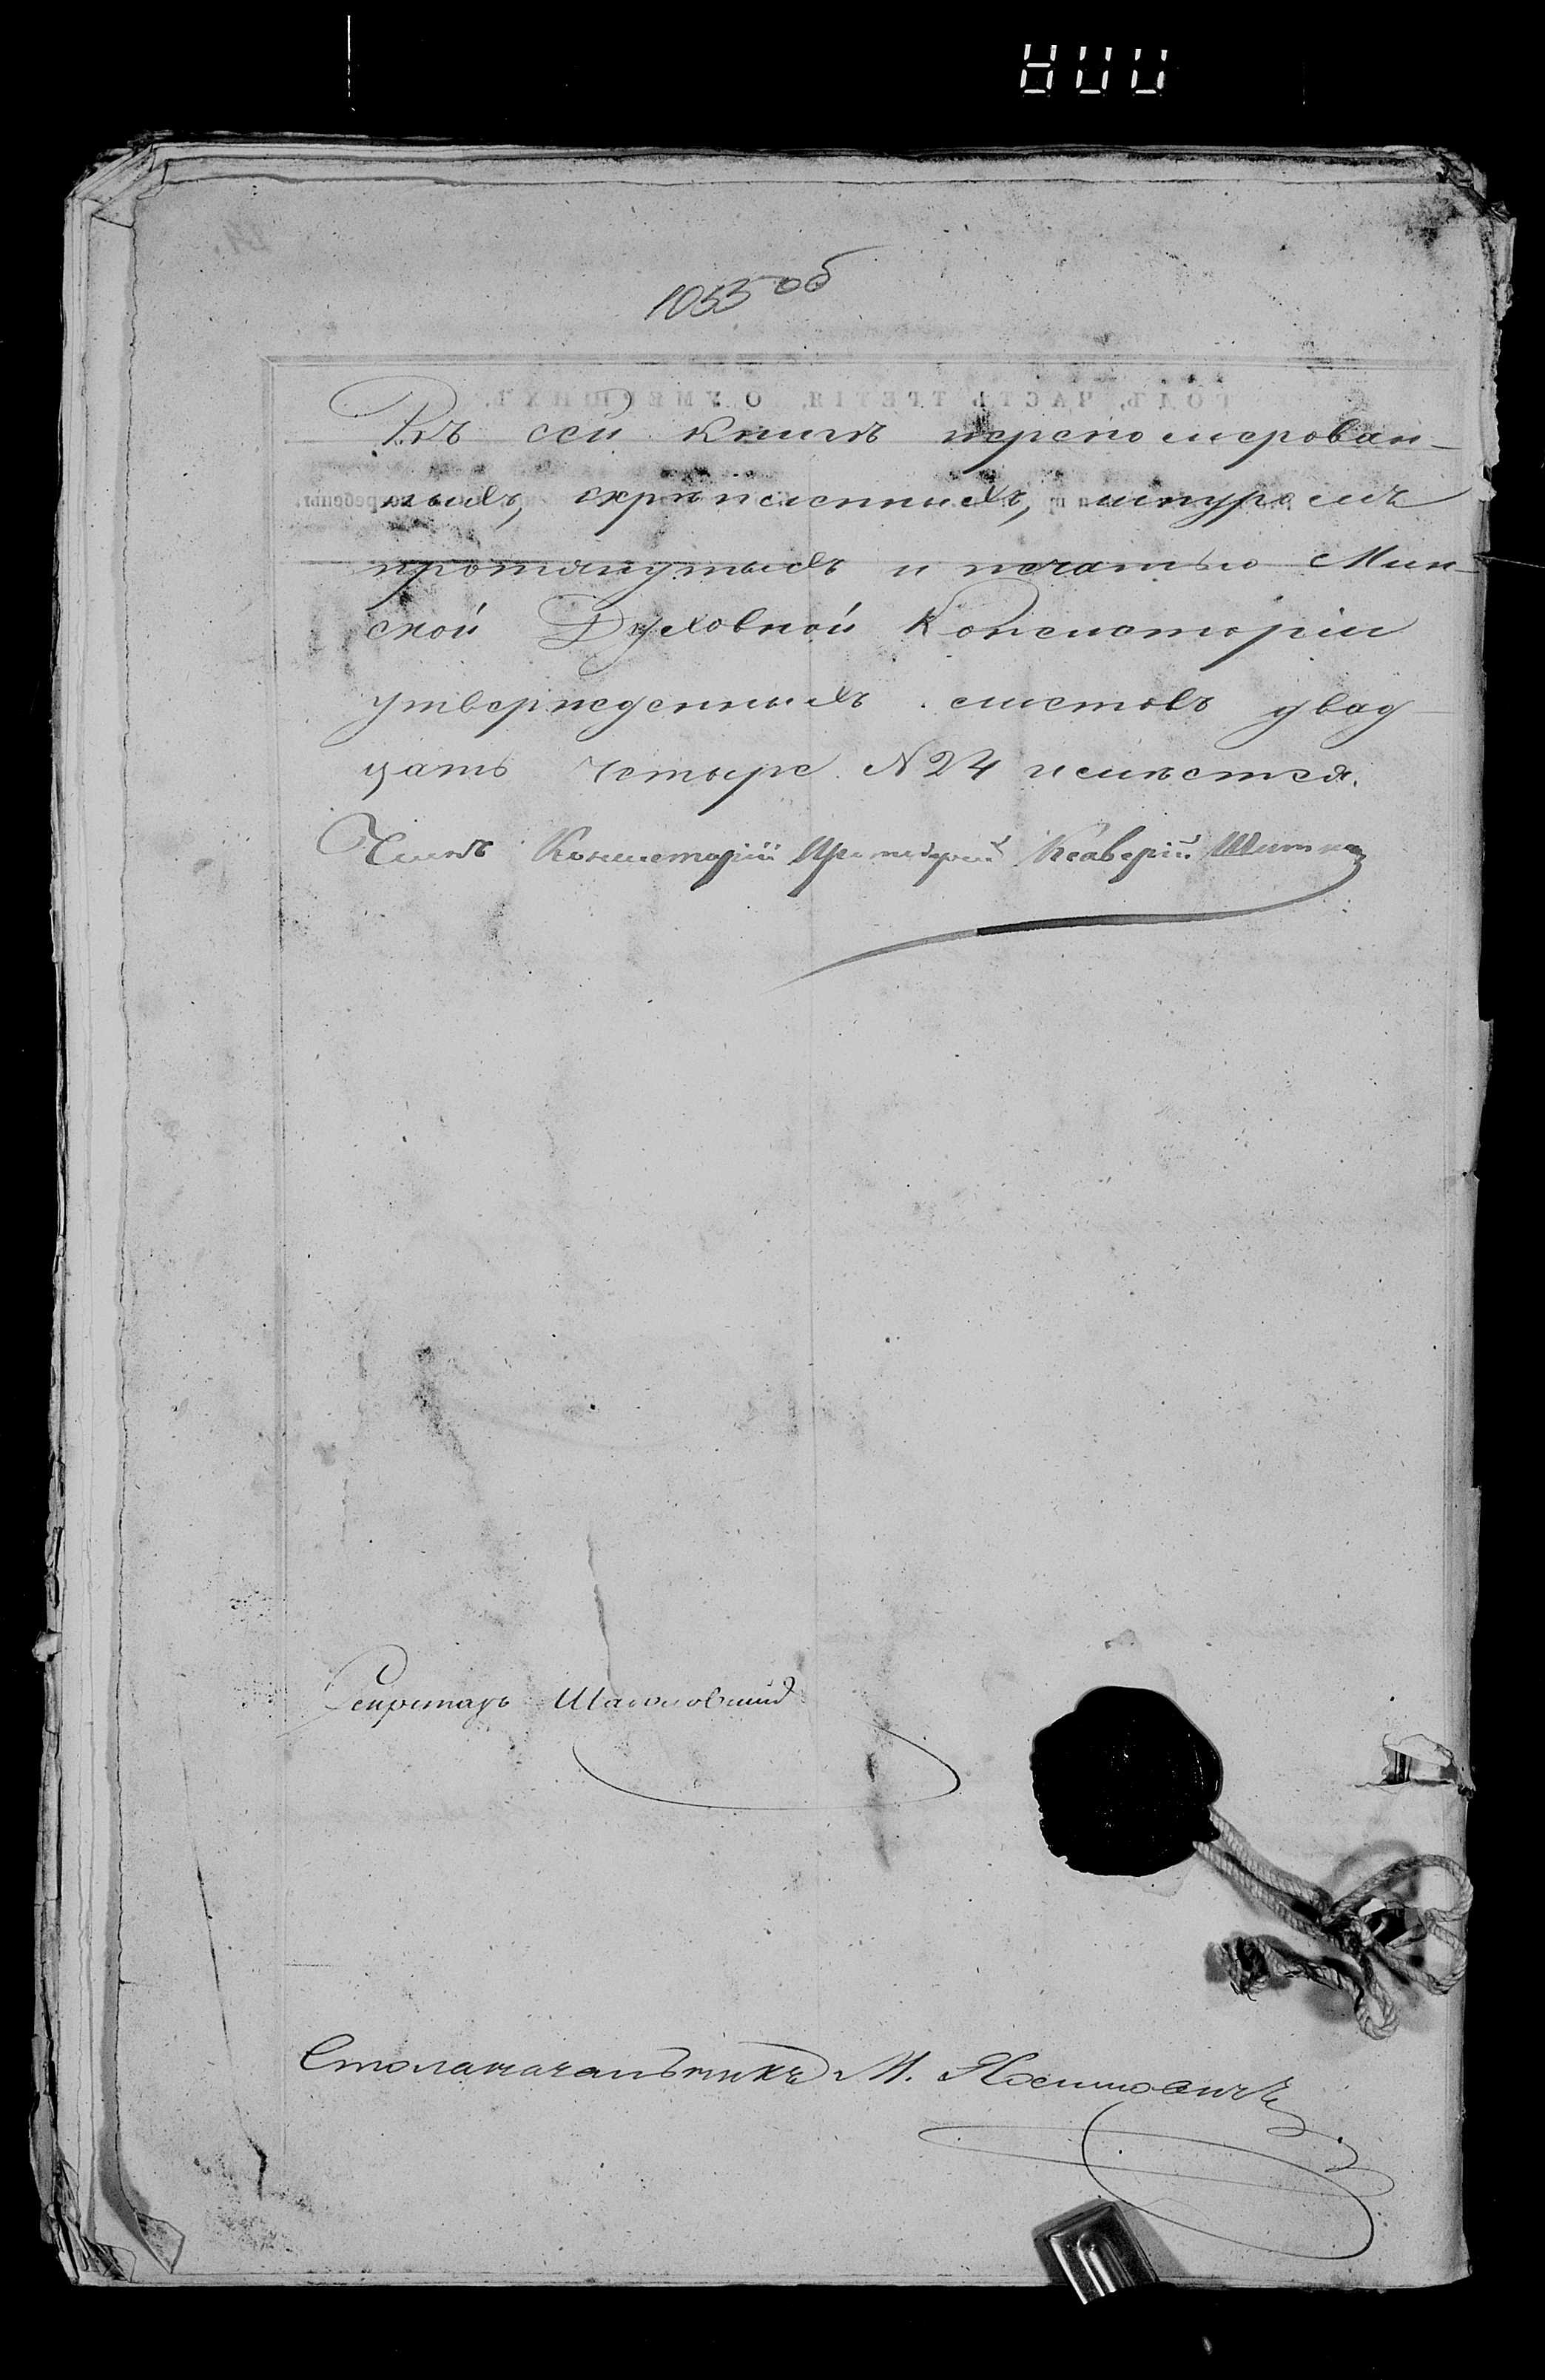 1055 об
Въ сей книгѣ перено мерован-
ныхъ, скрѣпленныхъ, шнуромъ
протянутыхъ и печатью Мин-
ской Духовной Консисторіи
утвержденныхъ листовъ двад
цать четыре № 24 имѣется.
Членъ Консисторіи Протоіерей Ксаверій
Секретарь
Столаначальникъ М.